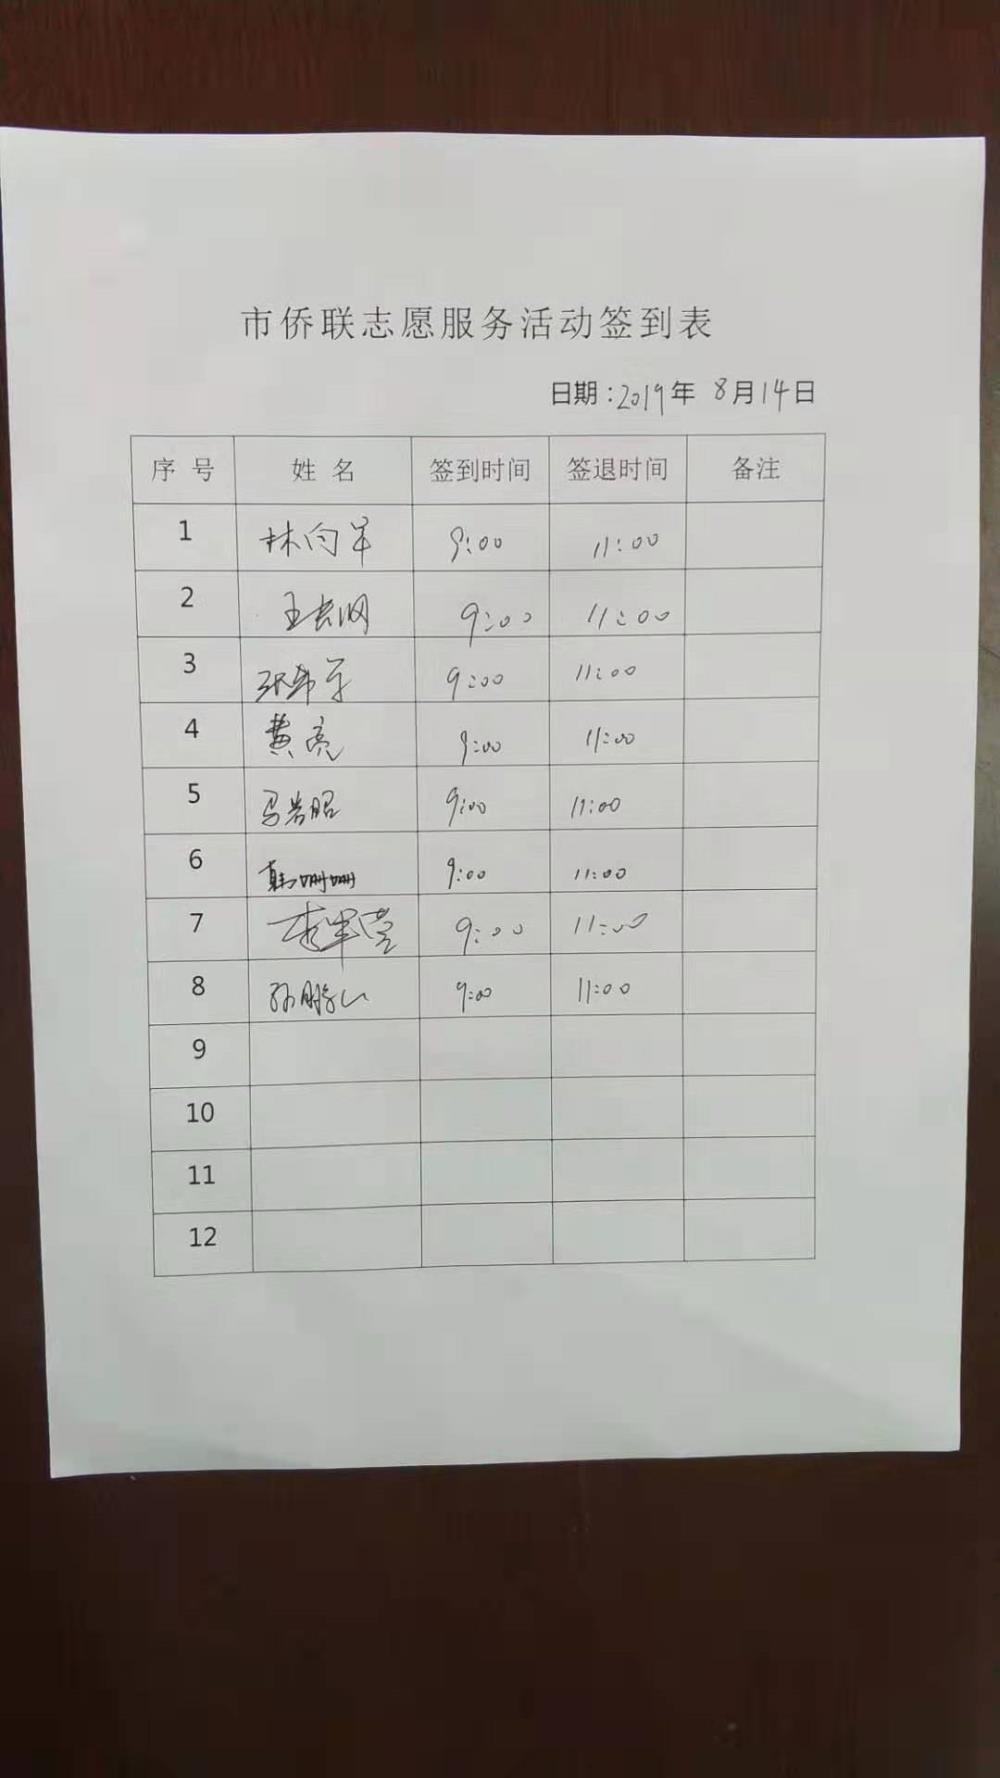 市侨联志愿服务活动签到表
日期:2019年 8月14日
序号 姓名 签到时间 签退时间 备注
1 林向军 9:00 11:00
2 王长网 9:00 11:00
3 张希军 9:00 11:00
4 黄亮 9:00 11:00
5 马岩昭 9:00 11:00
6 韩姗姗 9:00 11:00
7 李军营 9:00 11:00
8 孙鹏 9:00 11:00
9
10
11
12